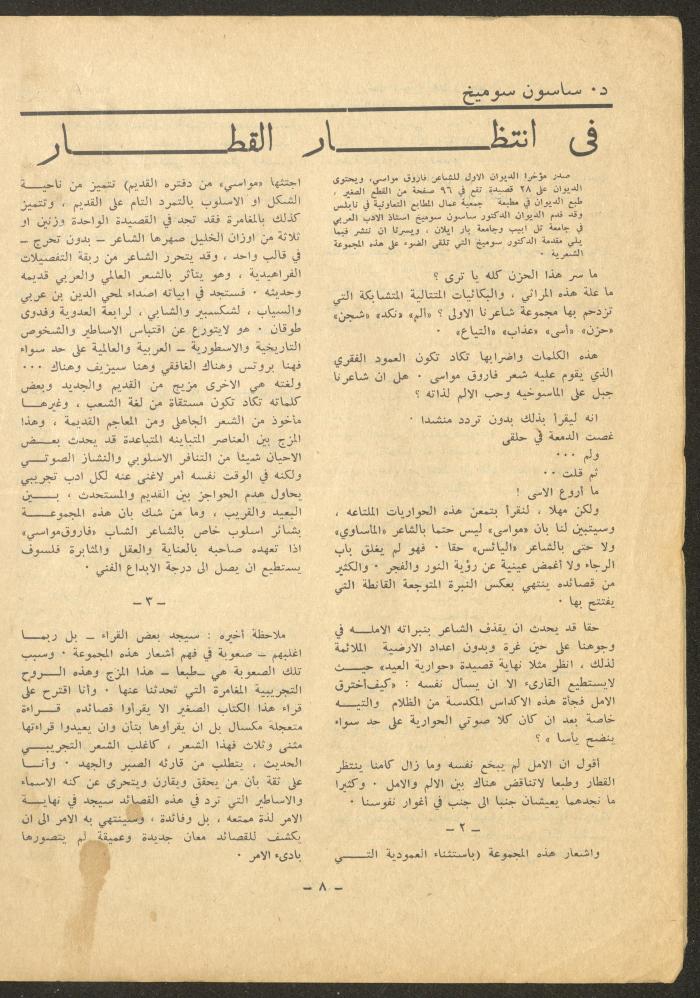 د. ساسون سوميخ
في انتظــــار القطــــار
صدر مؤخرا الديوان الاول للشاعر فاروق مواسي، ويحتوى
الديوان على ٢٨ قصيدة تقع في ٩٦ صفحة من القطع الصغير .
طبع الديوان في مطبعة جمعية عمال المطابع التعاونية في نابلس
وقد قدم الديوان الدكتور ساسون سوميخ استاذ الادب العربي
في جامعة تل ابيب وجامعة بار ايلان ، ويسرنا ان ننشر فيما
يلي مقدمة الدكتور سوميخ التي تلقى الضوء على هذه المجموعة
الشعرية .
ما سر هذا الحزن كله يا ترى ؟
ما علة هذه المراثي ، والبكائيات المتتالية المتشابكة التي
تزدحم بها مجموعة شاعرنا الاولى ؟ «الم» «نكد» «شجن»
«حزن» «أسى» «عذاب» «التياع» .
هذه الكلمات واضرابها تكاد تكون العمود الفقري
الذي يقوم عليه شعر فاروق مواسى . هل ان شاعرنا
جبل على الماسوخيه وحب الالم لذاته ؟
انه ليقرأ بذلك بدون تردد منشدا .
غصت الدمعة في حلقى
ولم ...
ثم قلت ..
ما أروع الاسى !
ولكن مهلا ، لنقرأ بتمعن هذه الحواريات الملتاعه ،
وسيتبين لنا بان «مواسى» ليس حتما بالشاعر «الماساوي»
ولا حتى بالشاعر «اليائس» حقا . فهو لم يغلق باب
الرجاء ولا أغمض عينية عن رؤية النور والفجر . والكثير
من قصائده ينتهي بعكس النبرة المتوجعة القانطة التي
يفتتح بها .
حقا قد يحدث ان يقذف الشاعر بنبراته الاملــه في
وجوهنا على حين غرة وبدون اعداد الارضية الملائمة
لذلك ، انظر مثلا نهاية قصيدة «حوارية العيد» حيــث
لايستطيع القارىء الا ان يسأل نفسه : «كيف أخترق
الامل فجأة هذه الاكداس المكدسة من الظلام والتيــه
خاصة بعد ان كان كلا صوتي الحوارية على حد سواء
ينضح يأسا » ؟
أقول ان الامل لم يبخع نفسه وما زال كامنا ينتظر
القطار وطبعا لاتناقض هناك بين الالم والامل . وكثيرا
ما نجدهما يعيشان جنبا الى جنب في أغوار نفوسنا .
ــ ٢ ــ
واشعار هذه المجموعة (باستثناء العمودية التــــي
اجتثها «مواسي» من دفتره القديم) تتميز من ناحيــة
الشكل او الاسلوب بالتمرد التام على القديم ، وتتميز
كذلك بالمغامرة فقد تجد في القصيدة الواحدة وزنين او
ثلاثة من اوزان الخليل صهرها الشاعر ــ بدون تحرج ــ
في قالب واحد ، وقد يتحرر الشاعر من ربقة التفصيلات
الفراهيدية ، وهو يتأثر بالشعر العالمي والعربي قديمه
وحديثه . فستجد في ابياته اصداء لمحي الدين بن عربي
والسياب ، لشكسبير والشابي ، لرابعة العدوية وفدوى
طوقان . هو لايتورع عن اقتباس الاساطير والشخوص
التاريخية والاسطورية ــ العربية والعالمية على حد سواء
فهنا بروتس وهناك الغافقي وهنا سيزيف وهناك ...
ولغته هي الاخرى مزيج من القديم والجديد وبعض
كلماته تكاد تكون مستقاة من لغة الشعب ، وغيرهــا
مأخوذ من الشعر الجاهلى ومن المعاجم القديمة ، وهذا
المزج بين العناصر المتباينه المتباعدة قد يحدث بعــض
الاحيان شيئا من التنافر الاسلوبي والنشاز الصوتــي
ولكنه في الوقت نفسه أمر لاغنى عنه لكل ادب تجريبي
يحاول هدم الحواجز بين القديم والمستحدث ، بــين
البعيد والقريب ، وما من شك بان هذه المجموعـــة
بشائر اسلوب خاص بالشاعر الشاب «فاروق مواسي»
اذا تعهده صاحبه بالعناية والعقل والمثابرة فلسوف
يستطيع ان يصل الى درجة الابداع الفني .
ــ ٣ ــ
ملاحظة أخيره : سيجد بعض القراء ــ بل ربمــا
اغلبهم ــ صعوبة في فهم أشعار هذه المجموعة . وسبب
تلك الصعوبة هي ــ طبعا ــ هذا المزج وهذه الــروح
التجريبية المغامرة التي تحدثنا عنها . وأنا اقترح على
قراء هذا الكتاب الصغير الا يقرأوا قصائده قــراءة
متعجلة مكسال بل ان يقرأوها بتأن وان يعيدوا قراءتها
مثنى وثلاث فهذا الشعر ، كاغلب الشعر التجريبــي
الحديث ، يتطلب من قارئه الصبر والجهد . وأنــا
على ثقة بان من يحقق ويقارن ويتحرى عن كنه الاسماء
والاساطير التي ترد في هذه القصائد سيجد في نهايــة
الامر لذة ممتعه ، بل وفائدة ، وسينتهي به الامر الى ان
يكشف للقصائد معان جديدة وعميقة لم يتصورها
بادىء الامر .
ــ ٨ ــ